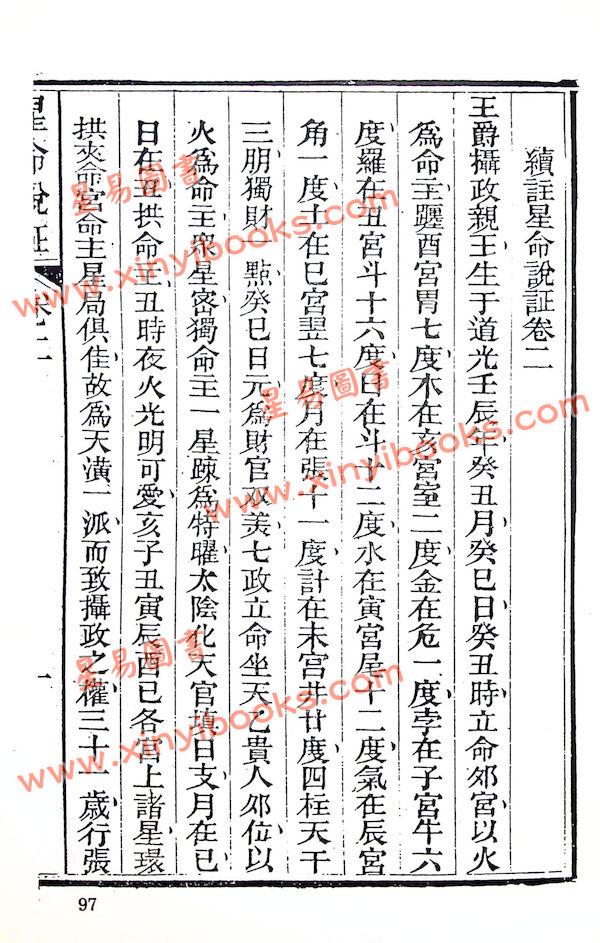 續註星命說証卷二
王爵攝政親王生于道光壬辰年癸丑月癸巳日癸丑時立命卯宮以火
為命主躔酉宮胃七度木在亥宮室二度金在危一度孛在子宮牛六
度羅在丑宮斗十六度日在斗十二度水在寅宮尾十二度氣在辰宮
角一度土在巳宮翌七度月在張十一度計在未宮井廿度四柱天干
三朋獨財一點癸巳日元為財官双美七政立命坐天乙貴人卯位以
火為命主眾星密獨命主一星疎為特曜太陰化天官填日支月在巳
日在丑拱命主丑時夜火光明可愛亥子丑寅辰酉巳各宮上諸星環
拱夾命宮命主星局俱佳故為天潢一派而致攝政之權三十一歲行張
星命說証
卷二
一
97
星易圖書
www.xinyibooks.com
星易圖書
www.xinyibooks.com
星易圖書
www.xinyibooks.com